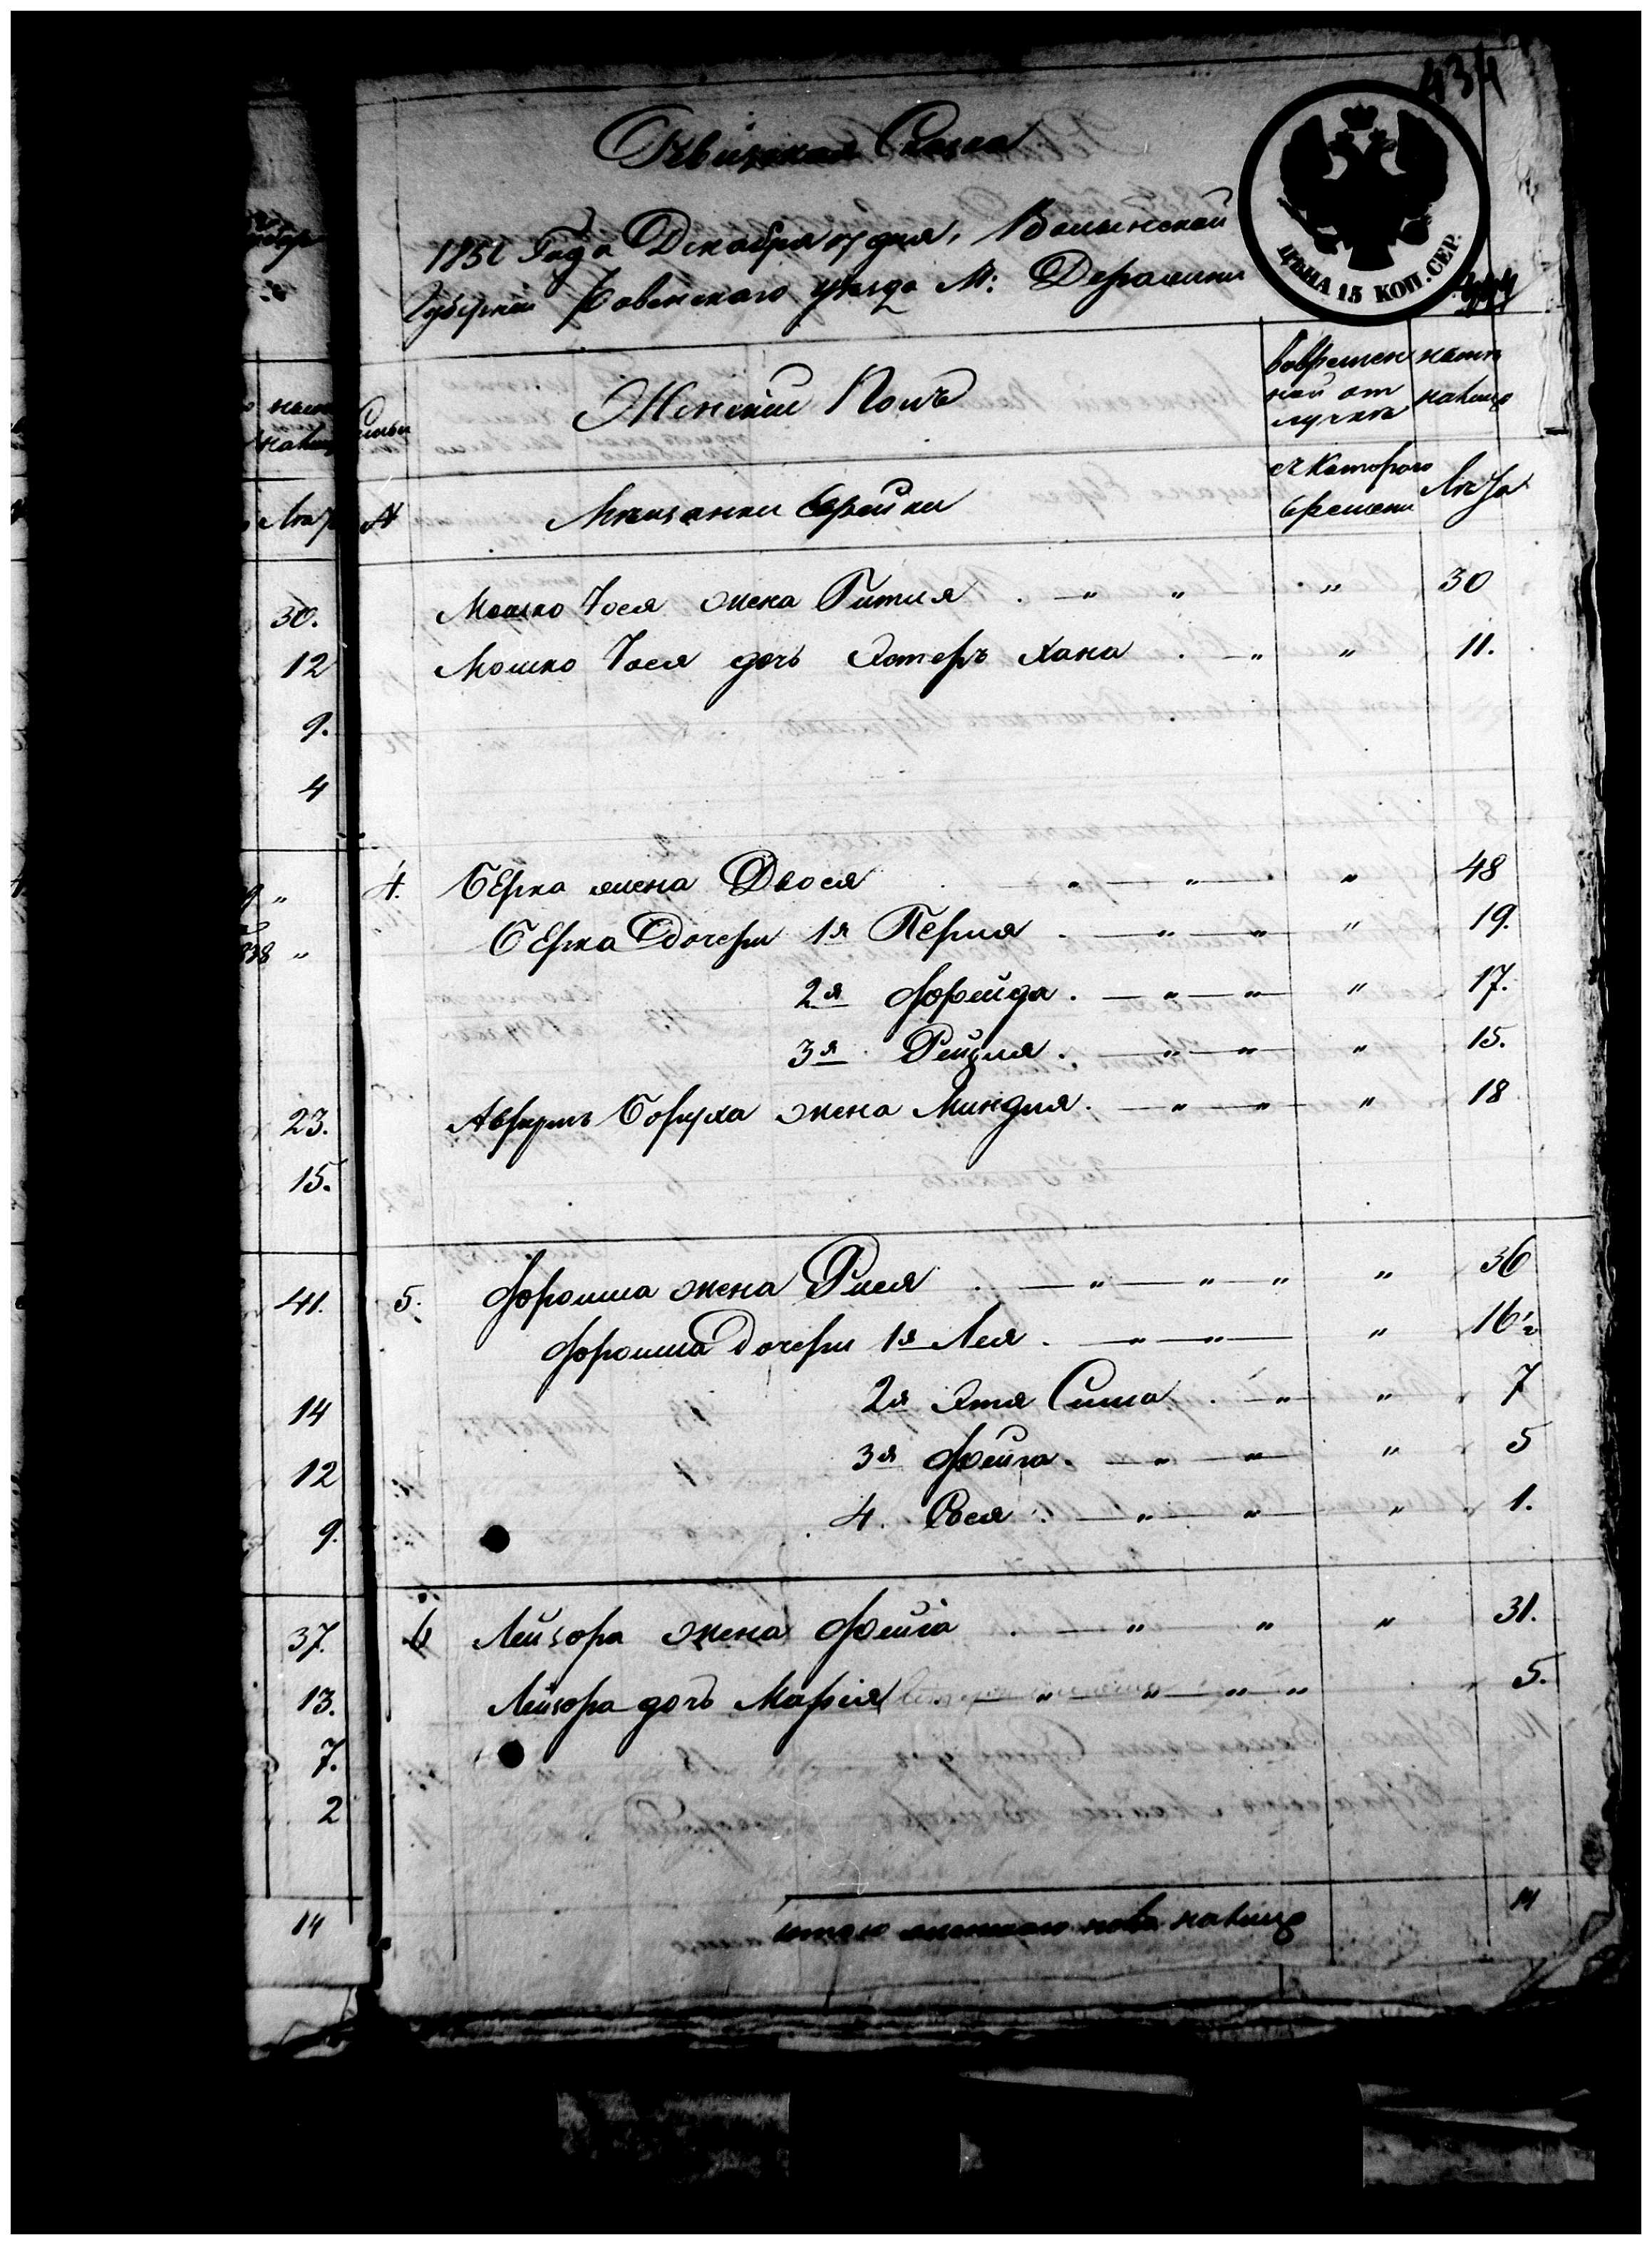 434
Ревизская Сказка
1850 Года Декабря дня, Волынской
Губернии Ровенского уезда М: Деражни
ЦѢНА 15 КОП. СЕР.
Женскии Полъ
вовремен
ной от
лучкѣ
налицо
Мещанки Еврейки
съ Которого
времени
Лета
Мошко Іося жена Гитля . — " " " 30
Мошко Іося дочь Эстеръ Хана . — " " 11.
4. Берка жена Двося . — " — " — " 48
Берка Дочери 1я Перля . — " — " — " 19.
2я Фрейда . — " — " — " 17.
3я Рейзля . — " — " — " 15.
Аврумъ Боруха жена Миндля . — " — " — " 18
5. Фроима жена Рися . — " — " — " " 36
Фроима Дочери 1я Лея . — " — " — " 16½
2я Этя Сима . — " " 7
3я Фейга . — " " " 5
4. Рося . — " " " 1.
6 Лейзора жена Фейга . — " " " 31.
Лейзора дочь Марія — " " " " 5.
Итого женского пола налицо 14
30.
12
9.
4
23.
15.
41.
14
12
9.
37.
13.
7.
2
14